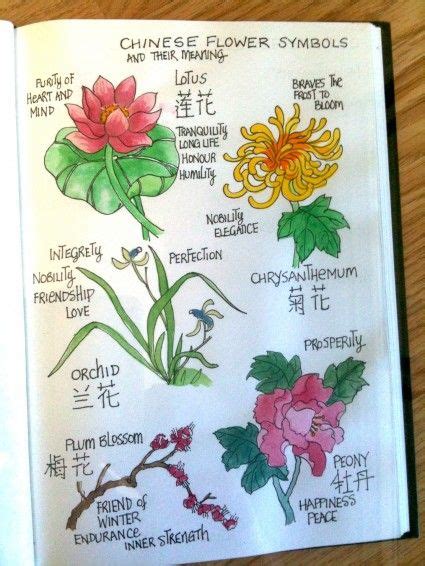 CHINESE FLOWER SYMBOLS
AND THEIR MEANING
PURITY OF
HEART AND
MIND
LOTUS
莲花
TRANQUILITY
LONG LIFE
HONOUR
HUMILITY
BRAVES THE
FROST TO
BLOOM
NOBILITY
ELEGANCE
CHRYSANTHEMUM
菊花
INTEGRETY
NOBILITY
FRIENDSHIP
LOVE
PERFECTION
ORCHID
兰花
PROSPERITY
PEONY
牡丹
HAPPINESS
PEACE
PLUM BLOSSOM
梅花
FRIEND OF
WINTER
ENDURANCE
INNER STRENGTH